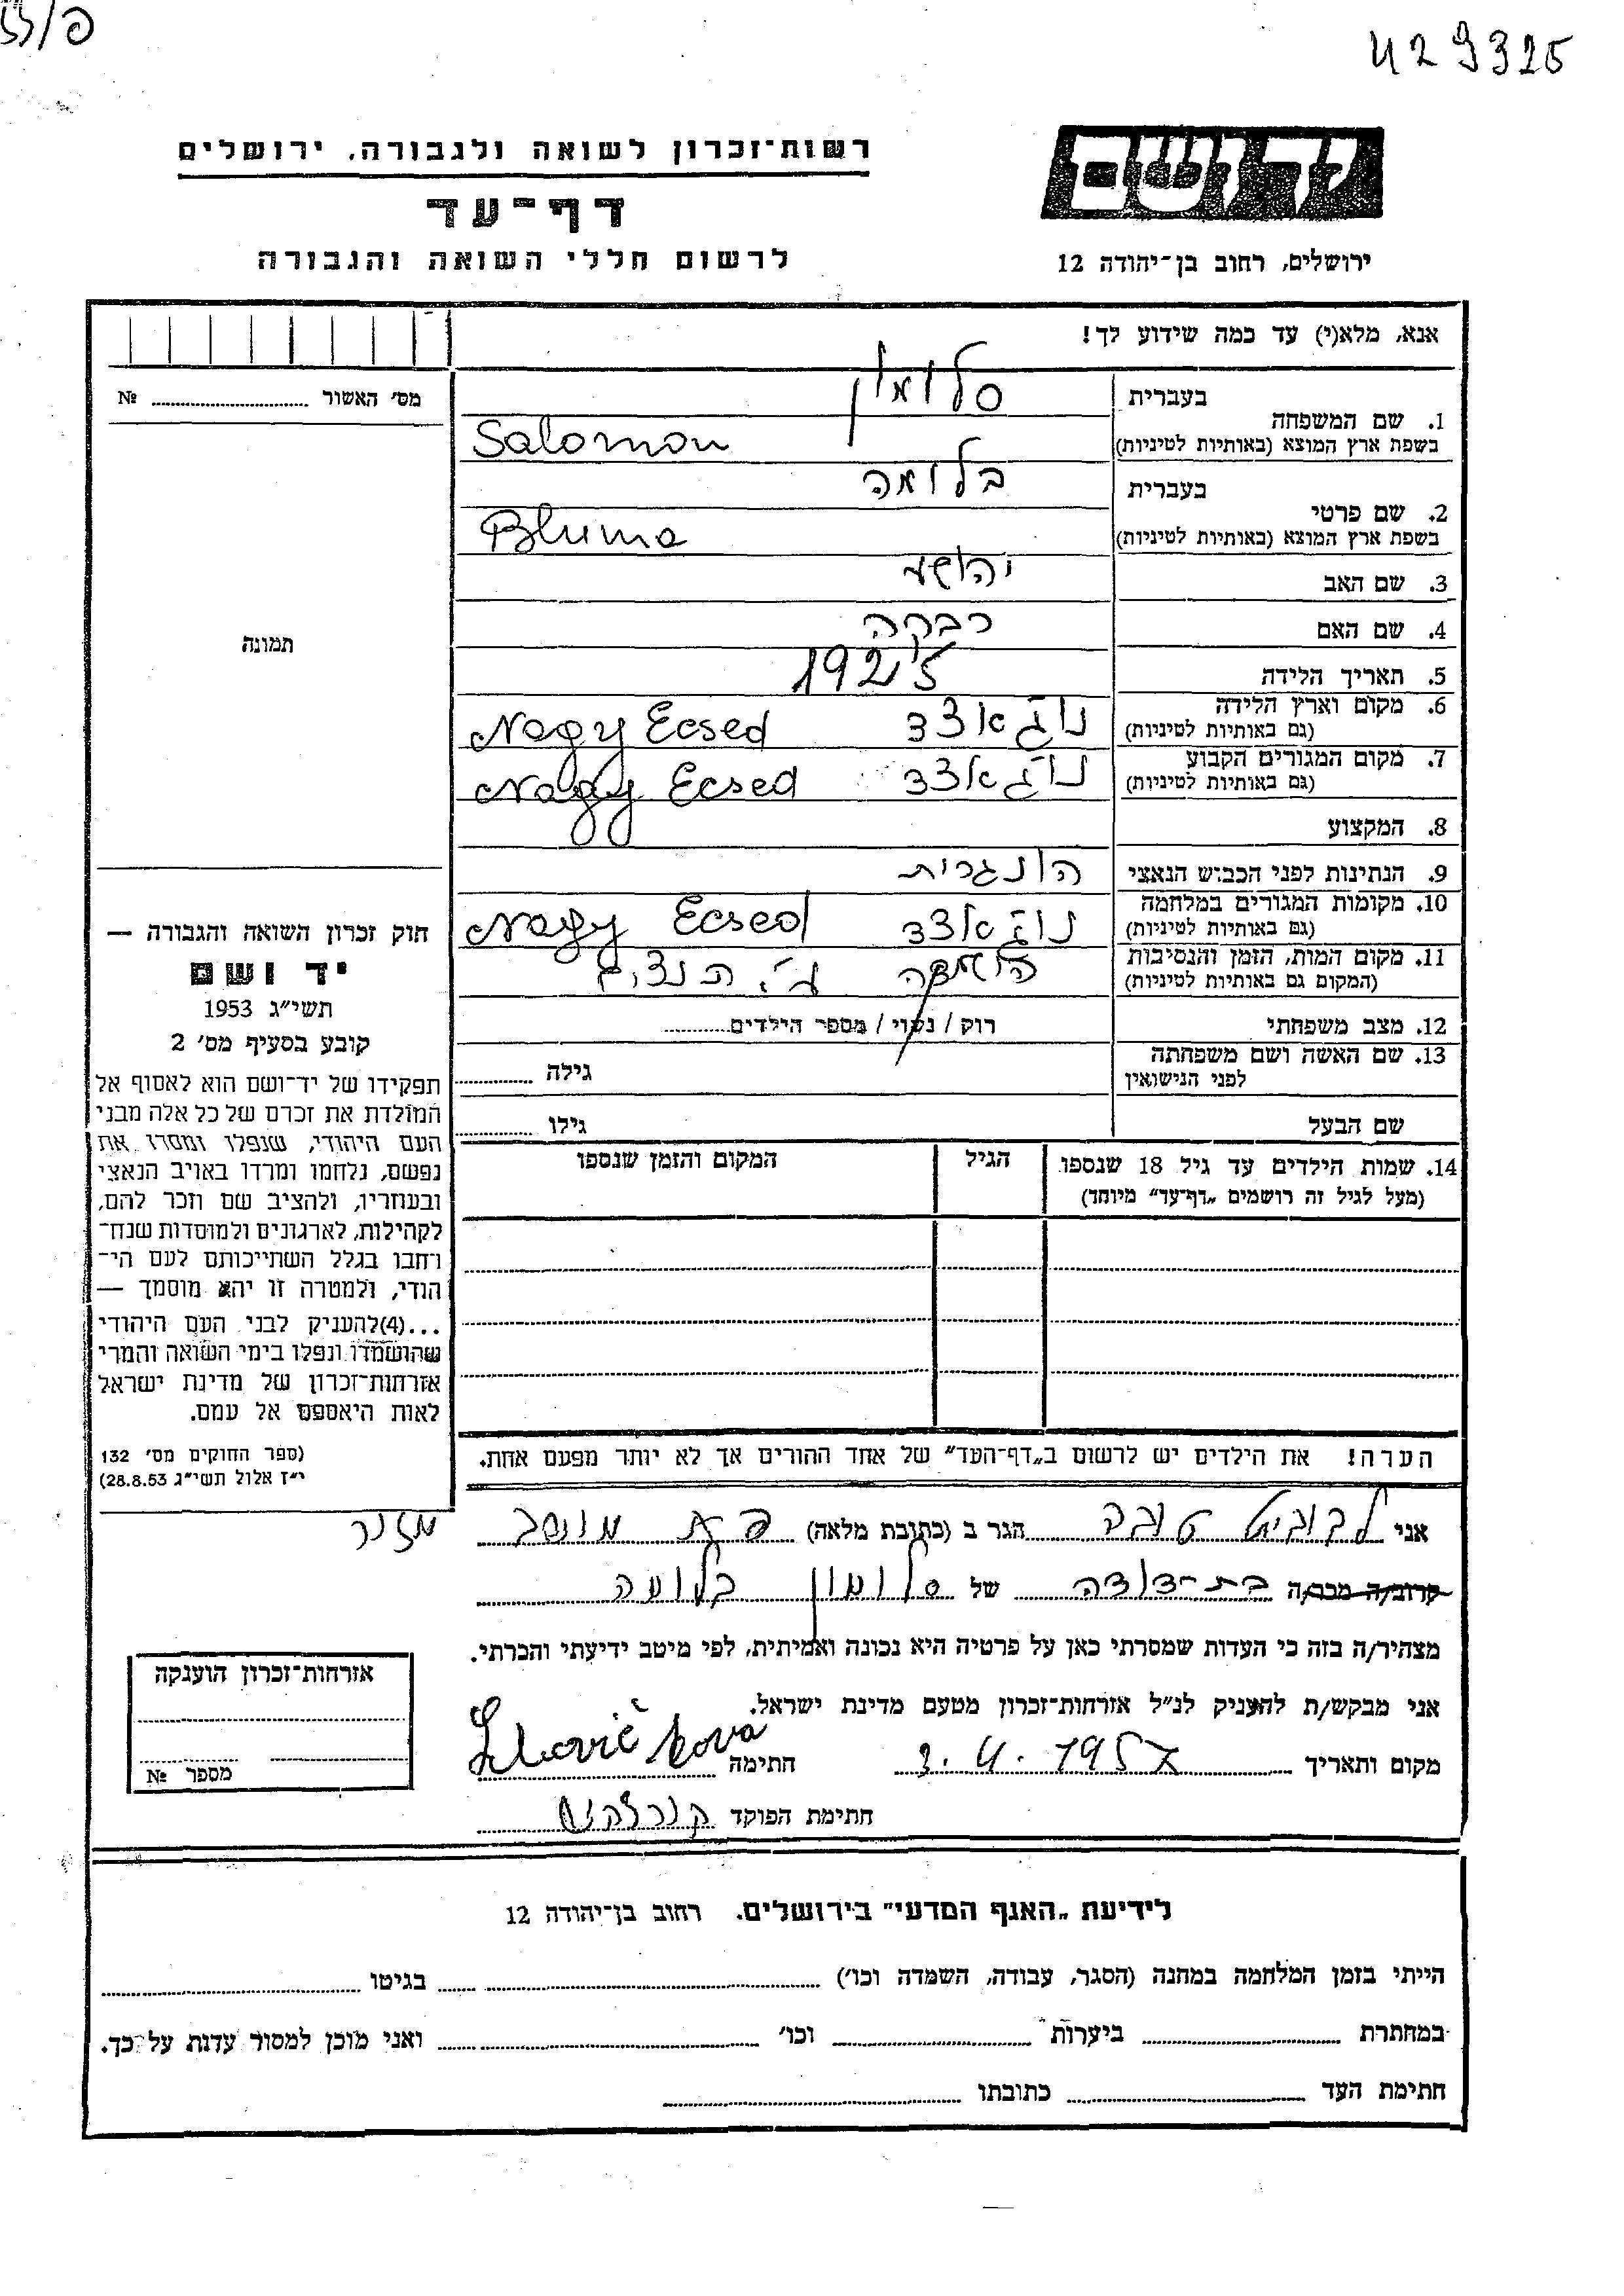 פ/55
429325
יד ושם
רשות־זכרון לשואה ולגבורה, ירושלים
דף־עד
לרשום חללי השואה והגבורה
ירושלים, רחוב בן־יהודה 12
אנא, מלא(י) עד כמה שידוע לך!
מס׳ האשור № 
1. שם המשפחה בעברית סלומון
בשפת ארץ המוצא (באותיות לטיניות) Salomon
2. שם פרטי בעברית בלומה
בשפת ארץ המוצא (באותיות לטיניות) Bluma
3. שם האב יהושע
4. שם האם רבקה
5. תאריך הלידה 1925
6. מקום וארץ הלידה נוג׳ אצד Nagy Ecsed
(גם באותיות לטיניות)
7. מקום המגורים הקבוע נוג׳ אצד Nagy Ecsed
(גם באותיות לטיניות)
8. המקצוע
9. הנתינות לפני הכבוש הנאצי הונגרית
10. מקומות המגורים במלחמה נוג׳ אצד Nagy Ecsed
(גם באותיות לטיניות)
11. מקום המות, הזמן והנסיבות הושמדה ע״י הנצים
(המקום גם באותיות לטיניות)
12. מצב משפחתי רוק / נשוי / מספר הילדים
13. שם האשה ושם משפחתה
לפני הנישואין גילה
שם הבעל גילו
14. שמות הילדים עד גיל 18 שנספו הגיל המקום והזמן שנספו
(מעל לגיל זה רושמים „דף־עד״ מיוחד)
הערה! את הילדים יש לרשום ב„דף־העד״ של אחד ההורים אך לא יותר מפעם אחת.
תמונה
חוק זכרון השואה והגבורה —
יד ושם
תשי״ג 1953
קובע בסעיף מס׳ 2
תפקידו של יד־ושם הוא לאסוף אל
המולדת את זכרם של כל אלה מבני
העם היהודי, שנפלו ומסרו את
נפשם, נלחמו ומרדו באויב הנאצי
ובעוזריו, ולהציב שם וזכר להם,
לקהילות, לארגונים ולמוסדות שנח־
רחבו בגלל השתייכותם לעם הי־
הודי, ולמטרה זו יהא מוסמך —
...(4)להעניק לבני העם היהודי
שהושמדו ונפלו בימי השואה והמרי
אזרחות־זכרון של מדינת ישראל
לאות היאספם אל עמם.
(ספר החוקים מס׳ 132
י״ז אלול תשי״ג 28.8.53)
אני לבוביץ טובה הגר ב (כתובת מלאה) פ״ת מושב מזור
קרוב/ה מכר/ה בת־דודה של סלומון בלומה
מצהיר/ה בזה כי העדות שמסרתי כאן על פרטיה היא נכונה ואמיתית, לפי מיטב ידיעתי והכרתי.
אני מבקש/ת להעניק לנ״ל אזרחות־זכרון מטעם מדינת ישראל.
מקום ותאריך 3.4.1957 חתימה
חתימת הפוקד
אזרחות־זכרון הוענקה
מספר №
לידיעת „האגף המדעי״ בירושלים. רחוב בן־יהודה 12
הייתי בזמן המלחמה במחנה (הסגר, עבודה, השמדה וכו׳) בגיטו
במחתרת ביערות וכו׳ ואני מוכן למסור עדות על כך.
חתימת העד כתובתו